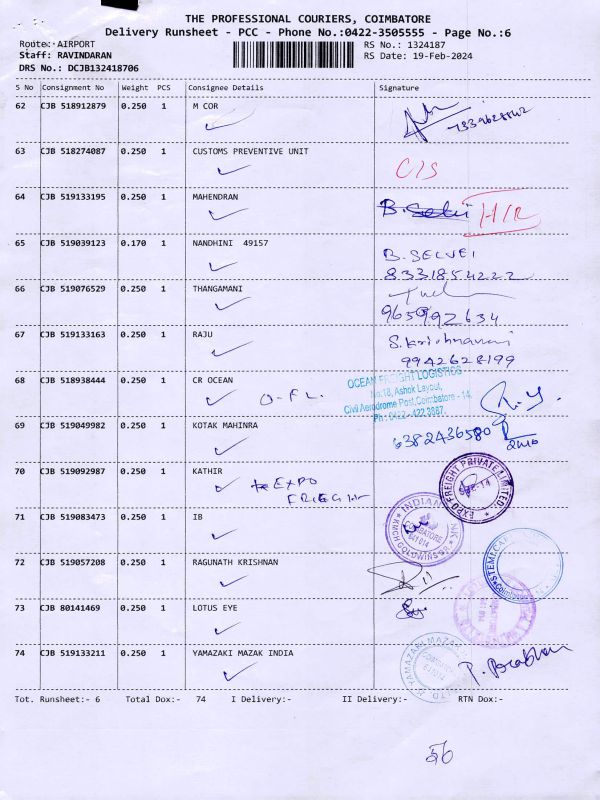 THE PROFESSIONAL COURIERS, COIMBATORE
Delivery Runsheet - PCC - Phone No.:0422-3505555 - Page No.:6
Route: AIRPORT RS No.: 1324187
Staff: RAVINDARAN RS Date: 19-Feb-2024
DRS No.: DCJB132418706
S No Consignment No Weight PCS Consignee Details Signature
62 CJB 518912879 0.250 1 M COR
63 CJB 518274087 0.250 1 CUSTOMS PREVENTIVE UNIT
64 CJB 519133195 0.250 1 MAHENDRAN
65 CJB 519039123 0.170 1 NANDHINI 49157
B. SELVEI
8331854222
66 CJB 519076529 0.250 1 THANGAMANI
67 CJB 519133163 0.250 1 RAJU
9942628199
68 CJB 518938444 0.250 1 CR OCEAN
O-FL.
OCEAN FREIGHT LOGISTICS
No.18, Ashok Layout,
Civil Aerodrome Post, Coimbatore - 14.
Ph : 0422 - 422 3887.
69 CJB 519049982 0.250 1 KOTAK MAHINRA
6382436580
70 CJB 519092987 0.250 1 KATHIR
EXPO
EXPO FREIGHT PRIVATE LIMITED
71 CJB 519083473 0.250 1 IB
INDIAN
72 CJB 519057208 0.250 1 RAGUNATH KRISHNAN
73 CJB 80141469 0.250 1 LOTUS EYE
74 CJB 519133211 0.250 1 YAMAZAKI MAZAK INDIA
YAMAZAKI MAZAK
Tot. Runsheet:- 6 Total Dox:- 74 I Delivery:- II Delivery:- RTN Dox:-